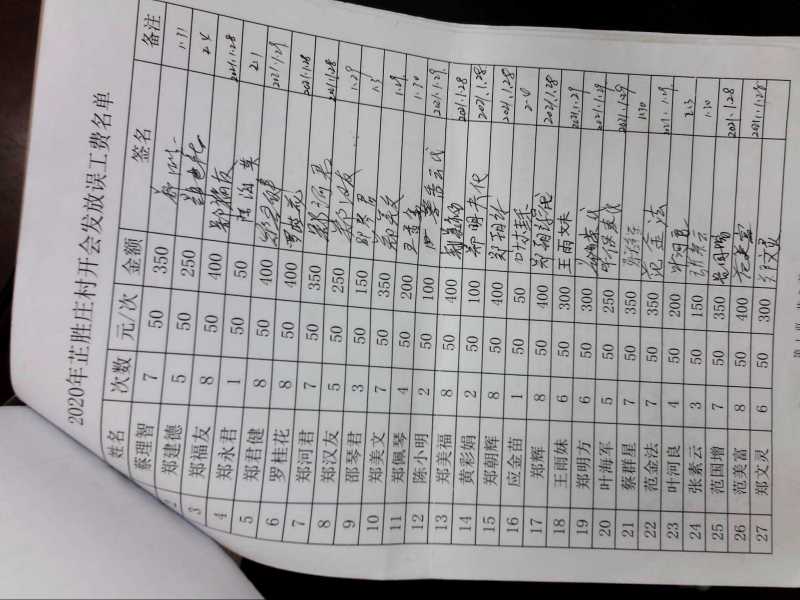 2020年芷胜庄村开会发放误工费名单
姓名 次数 元/次 金额 签名 备注
蔡理智 7 50 350 1.31
2 郑建德 5 50 250 2.4
3 郑福友 8 50 400 郑福友 2021.1.28
4 郑永君 1 50 50 2.1
5 郑君健 8 50 400 2021.1.29
6 罗桂花 8 50 400 罗桂花 2021.1.28
7 郑河君 7 50 350 郑河君 2021.1.28
8 郑汉友 5 50 250 郑汉友 2021.1.28
9 邵琴君 3 50 150 邵琴君 1.29
10 郑美文 7 50 350 郑美文
11 郑佩琴 4 50 200 1.29
12 陈小明 2 50 100 1.30
13 郑美福 8 50 400 郑美福 2021.1.29
14 黄彩娟 2 50 100 郑明夫代 2021.1.28
15 郑朝辉 8 50 400 郑朝辉 2021.1.28
16 应金苗 1 50 50 2021.1.28
17 郑辉 8 50 400 2.4
18 王雨妹 6 50 300 王雨妹 2021.1.28
19 郑明方 6 50 300 2021.1.29
20 叶海军 5 50 250 2021.1.29
21 蔡群星 7 50 350 2021.1.29
22 范金法 7 50 350 范金法 1.30
23 叶河良 4 50 200 叶河良 2021.1.29
24 张素云 3 50 150 张素云 2.3
25 范国增 7 50 350 1.30
26 范美富 8 50 400 范美富 2021.1.28
27 郑文灵 6 50 300 郑文灵 2021.1.28